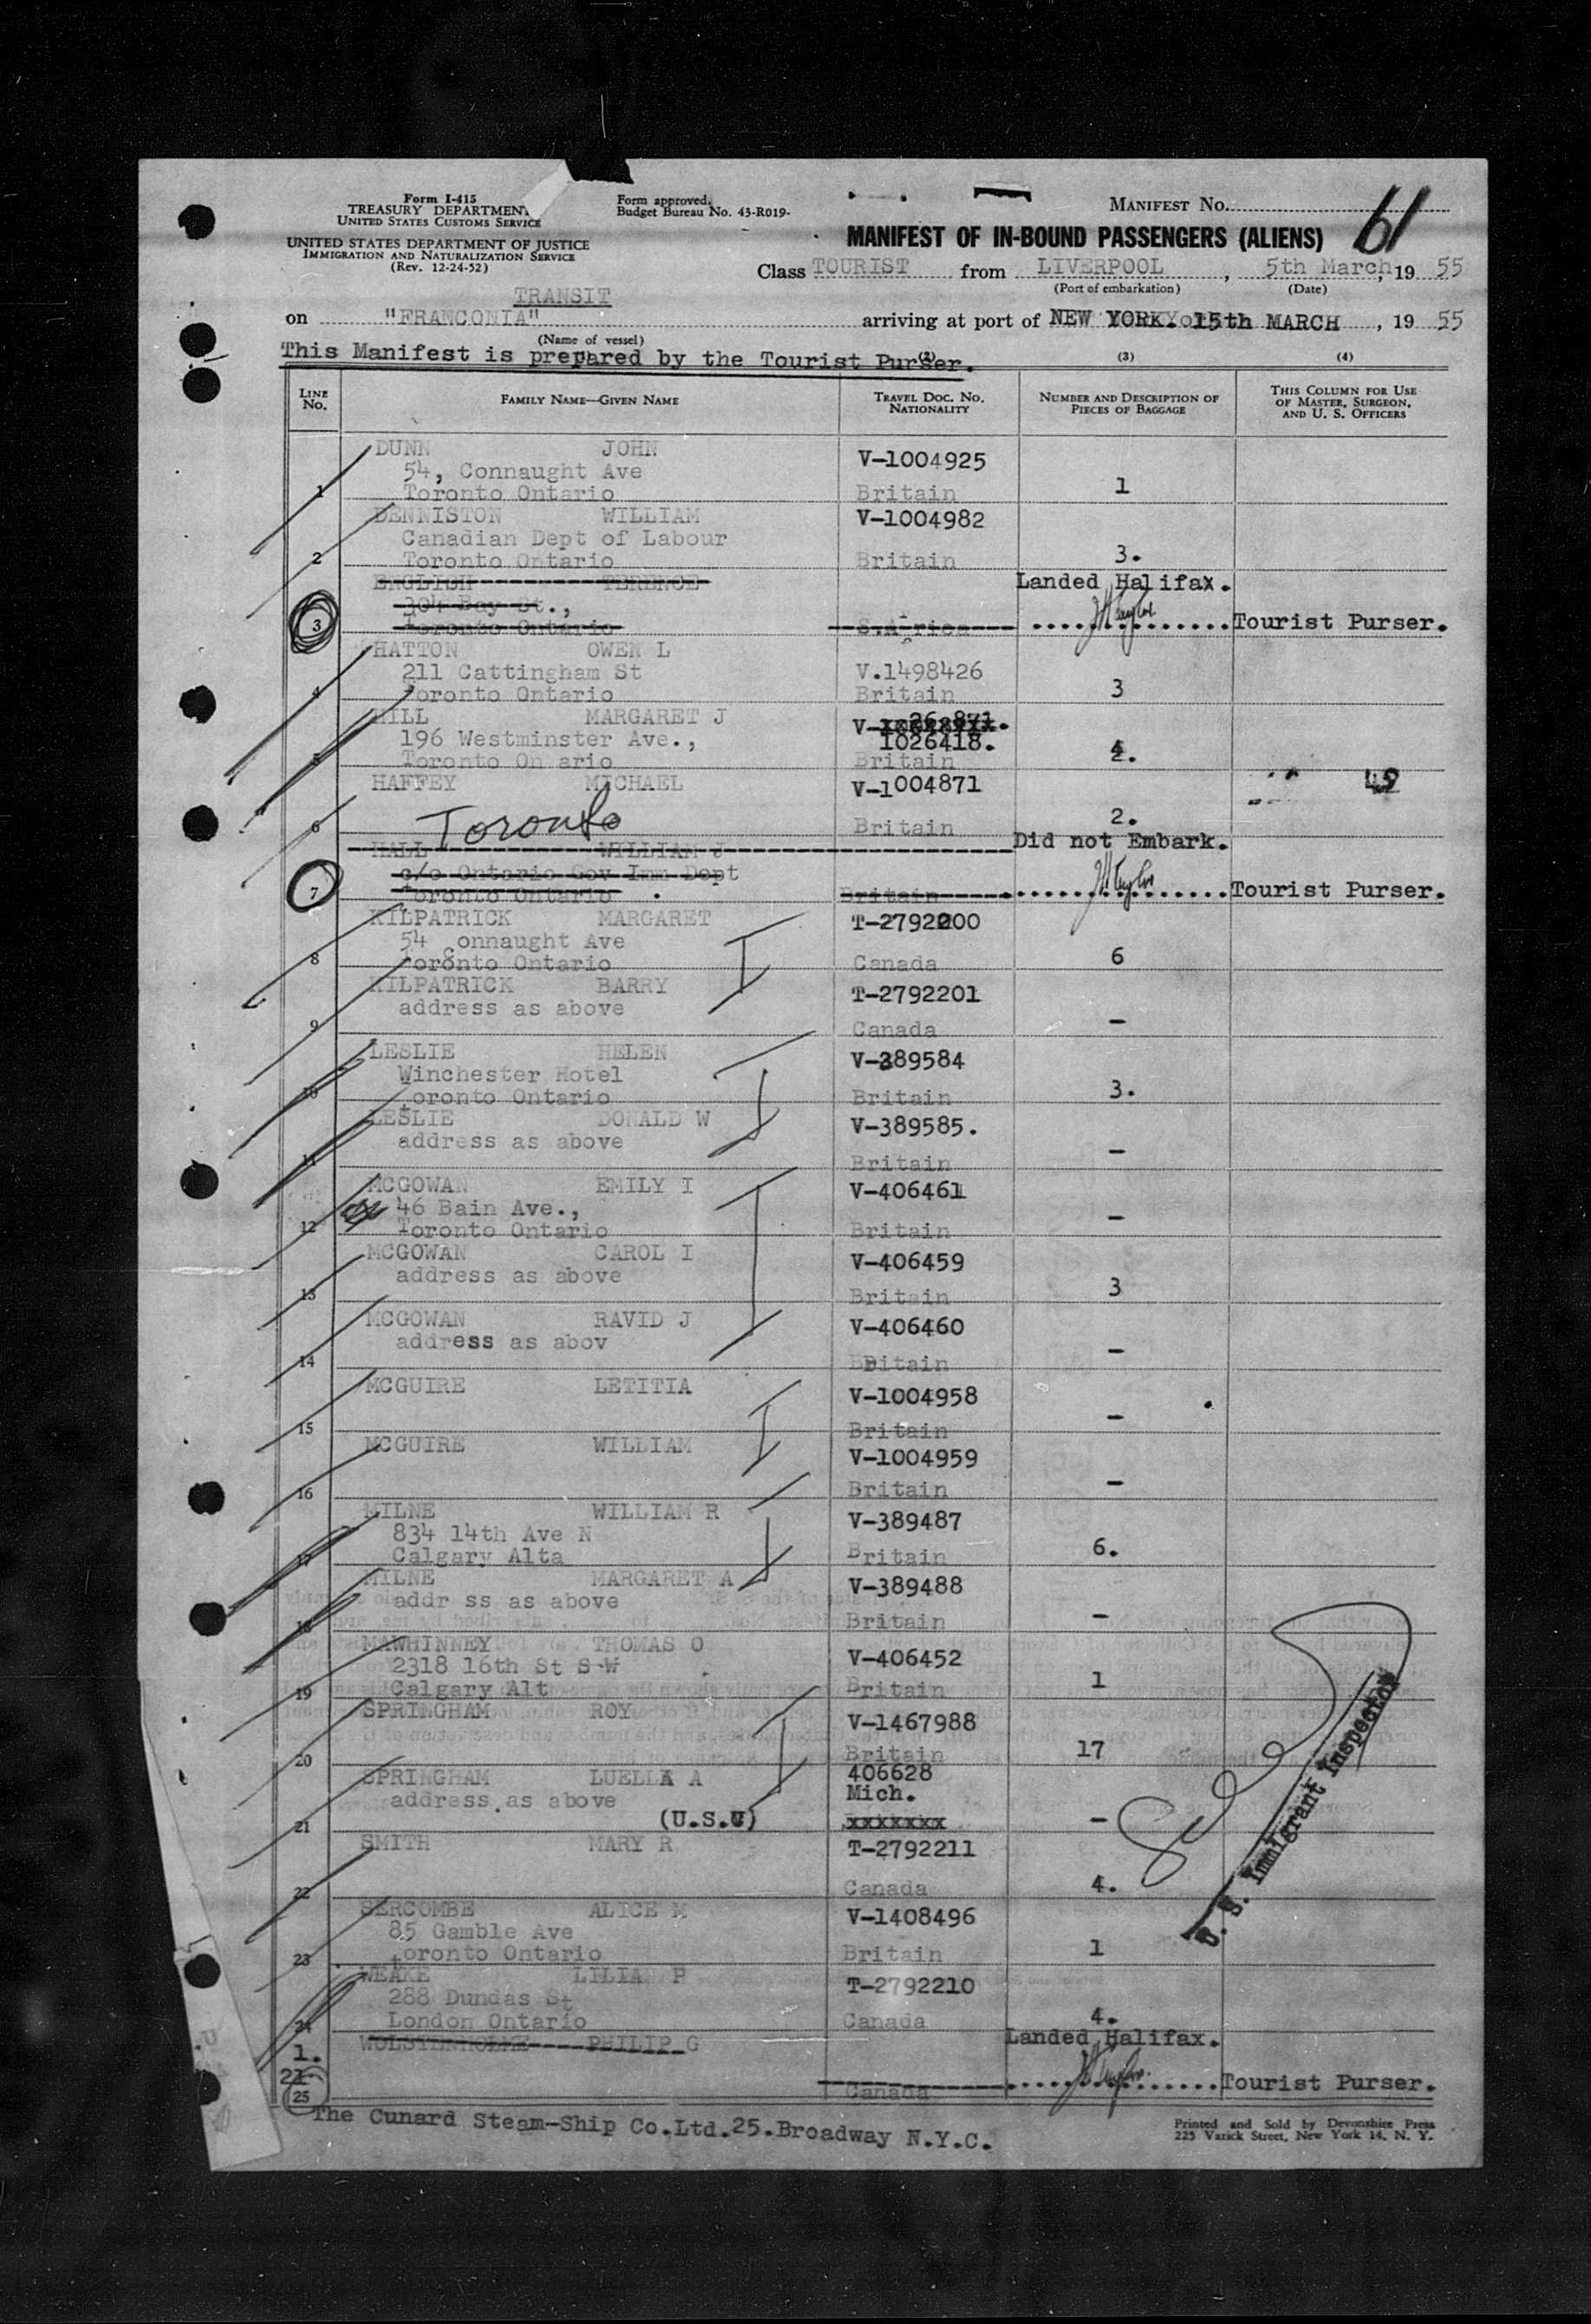 Form I-415
TREASURY DEPARTMENT
UNITED STATES CUSTOMS SERVICE
UNITED STATES DEPARTMENT OF JUSTICE
IMMIGRATION AND NATURALIZATION SERVICE
(Rev. 12-24-52)
Form approved.
Budget Bureau No. 43-R019-
MANIFEST NO.
61
MANIFEST OF IN-BOUND PASSENGERS (ALIENS)
Class TOURIST from LIVERPOOL, 5th March, 19 55
(Port of embarkation) (Date)
TRANSIT
on "FRANCONIA" arriving at port of NEW YORK. 15th MARCH, 19 55
(Name of vessel)
This Manifest is prepared by the Tourist Purser.
(3) (4)
LINE No.
FAMILY NAME—GIVEN NAME
TRAVEL DOC. NO. NATIONALITY
NUMBER AND DESCRIPTION OF PIECES OF BAGGAGE
THIS COLUMN FOR USE OF MASTER, SURGEON, AND U. S. OFFICERS
DUNN JOHN V-1004925
54, Connaught Ave
1 Toronto Ontario Britain 1
DENNISTON WILLIAM V-1004982
Canadian Dept of Labour
2 Toronto Ontario Britain 3.
ENGLISH TERENCE Landed Halifax.
304 Bay St.,
3 Toronto Ontario S.Africa Tourist Purser.
HATTON OWEN L
211 Cattingham St V.1498426
4 Toronto Ontario Britain 3
HILL MARGARET J V-
196 Westminster Ave., 1026418.
5 Toronto On ario Britain 4.
HAFFEY MICHAEL V-1004871
6 Toronto Britain 2.
HALL WILLIAM J Did not Embark.
c/o Ontario Gov Imm Dept
7 Toronto Ontario Britain Tourist Purser.
KILPATRICK MARGARET T-2792200
54 Connaught Ave
8 Toronto Ontario Canada 6
KILPATRICK BARRY T-2792201
address as above
9 Canada -
LESLIE HELEN V-389584
Winchester Hotel
10 Toronto Ontario Britain 3.
LESLIE DONALD W V-389585.
address as above
11 Britain -
MCGOWAN EMILY I V-406461
46 Bain Ave.,
12 Toronto Ontario Britain -
MCGOWAN CAROL I V-406459
address as above
13 Britain 3
MCGOWAN RAVID J V-406460
address as abov
14 Britain -
MCGUIRE LETITIA V-1004958
15 Britain -
MCGUIRE WILLIAM V-1004959
16 Britain -
MILNE WILLIAM R V-389487
834 14th Ave N
17 Calgary Alta Britain 6.
MILNE MARGARET A V-389488
addr ss as above
18 Britain -
MAWHINNEY THOMAS O V-406452
2318 16th St S W
19 Calgary Alt Britain 1
SPRINGHAM ROY V-1467988
20 Britain 17
SPRINGHAM LUELLA A 406628
address as above Mich.
21 (U.S.C) xxxxxxx -
SMITH MARY R T-2792211
22 Canada 4.
SERCOMBE ALICE M V-1408496
85 Gamble Ave
23 toronto Ontario Britain 1
WEAKE LILIAN P T-2792210
288 Dundas St
24 London Ontario Canada 4.
PHILIP G Landed Halifax.
1.
21
25 Canada Tourist Purser.
U. S. Immigrant Inspector
The Cunard Steam-Ship Co.Ltd.25.Broadway N.Y.C.
Printed and Sold by Devonshire Press
225 Varick Street, New York 14, N. Y.